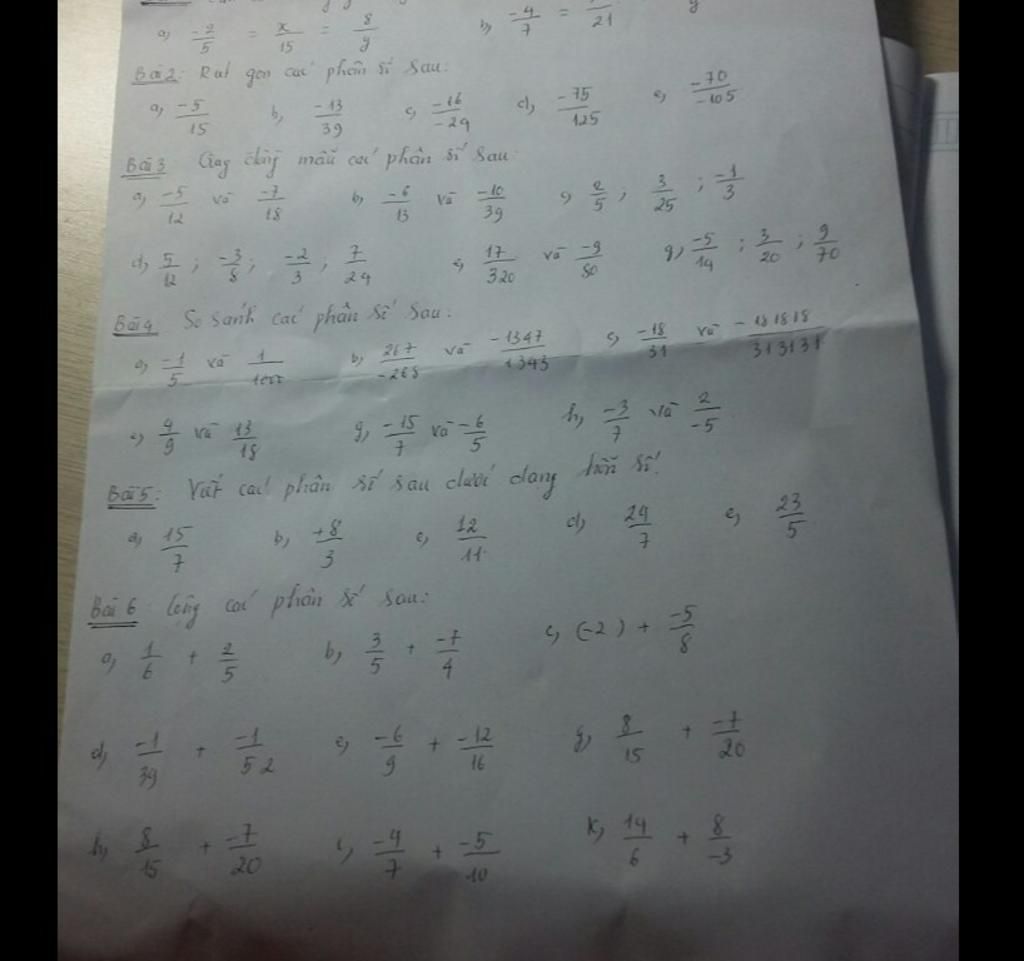 a, -2/5 = x/15 = 8/y b, -4/7 = /21 y
Bài 2: Rút gọn các phân số sau:
a, -5/15 b, -13/39 c, -16/-24 d, -75/125 e, -70/-105
Bài 3 Quy đồng mẫu các phân số sau
a, -5/12 và -7/18 b, -6/13 và -10/39 c, 2/5 ; 3/25 ; -1/3
d, 5/12 ; -3/8 ; -2/3 ; 7/24 e, 17/320 và -9/80 g, -5/14 ; 3/20 ; 9/70
Bài 4 So sánh các phân số sau:
a, -1/5 và 1/1000 b, 267/-268 và -1347/1343 c, -18/31 và -181818/313131
e, 4/9 và 13/18 g, -15/7 và -6/5 h, -3/7 và 2/-5
Bài 5: Viết các phân số sau dưới dạng hỗn số:
a, 15/7 b, +8/3 c, 12/11 d, 24/7 e, 23/5
Bài 6 Cộng các phân số sau:
a, 1/6 + 2/5 b, 3/5 + -7/4 c, (-2) + -5/8
d, -1/39 + -1/52 e, -6/9 + -12/16 g, 8/15 + -7/20
h, 8/15 + -7/20 i, -4/7 + -5/10 k, 14/6 + 8/-3